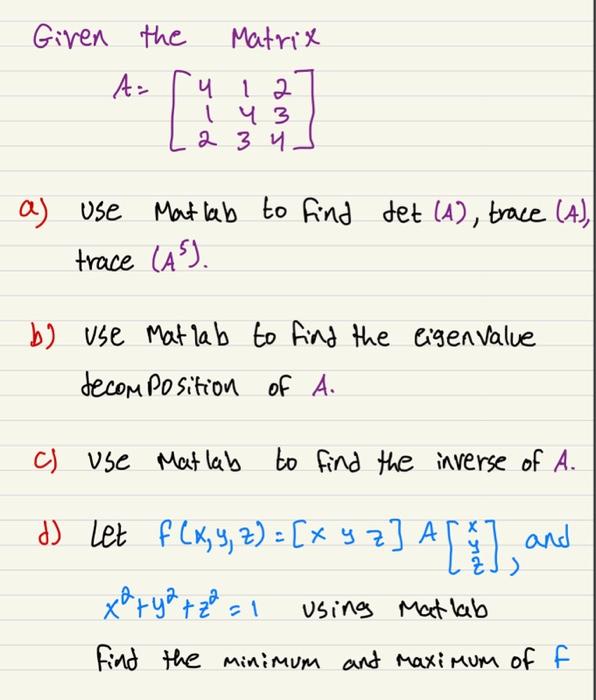 Given the Matrix
A= [4 1 2
1 4 3
2 3 4]
a) Use Matlab to find det (A), trace (A),
trace (A⁵).
b) Use Matlab to find the eigenvalue
decomposition of A.
c) Use Matlab to find the inverse of A.
d) Let f(x,y,z)=[x y z] A [x y z], and
x²+y²+z²=1 using Matlab
find the minimum and maximum of f